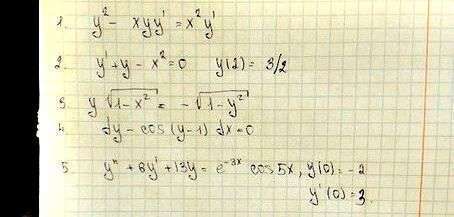 1. y² - xyy' = x²y'
2. y' + y - x² = 0 y(2) = 3/2
3 y√(1-x²) = -√(1-y²)
4 dy - cos(y-1) dx = 0
5 y" + 6y' + 13y = e⁻³ˣ cos5x, y(0) = -2
y'(0) = 3